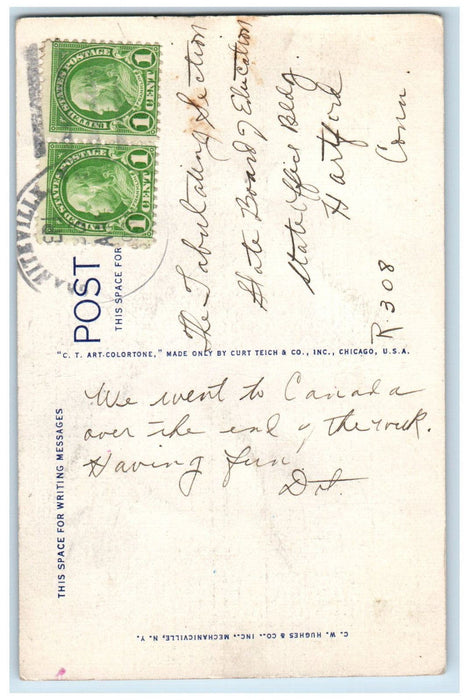 UNITED STATES POSTAGE
1 CENT 1
UNITED STATES POSTAGE
1 CENT 1
POST
THIS SPACE FOR
The Tabulating Section
State Board of Education
State Office Bldg.
Hartford
Conn.
R 308
"C. T. ART-COLORTONE," MADE ONLY BY CURT TEICH & CO., INC., CHICAGO, U.S.A.
THIS SPACE FOR WRITING MESSAGES
We went to Canada
over the end of the week.
Having fun.
Dot.
C. W. HUGHES & CO., INC., MECHANICVILLE, N. Y.